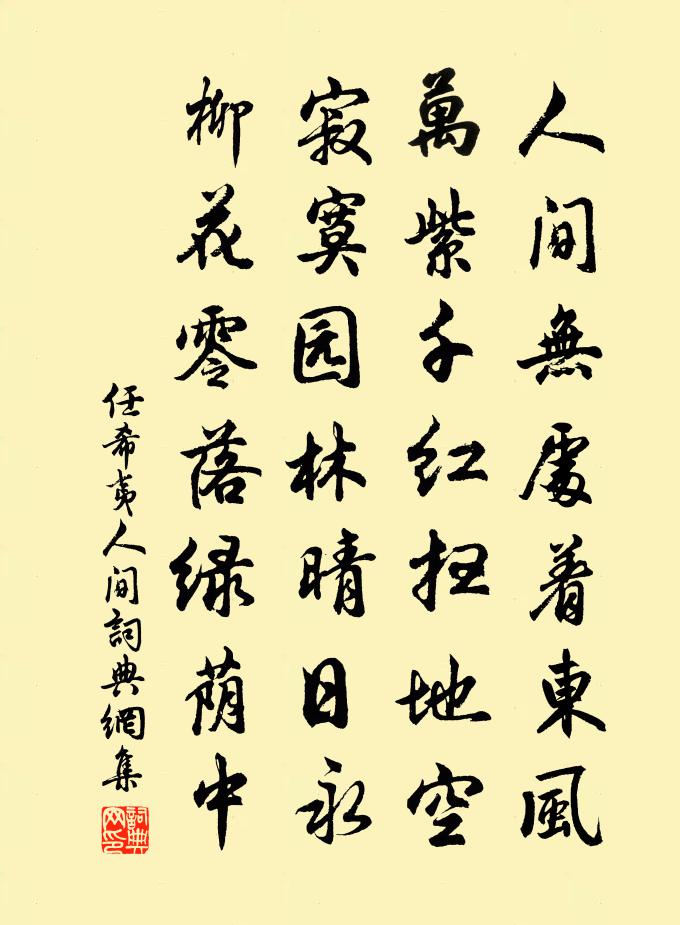 人间無處着東風
萬紫千红扫地空
寂寞园林晴日永
柳花零落绿荫中
任希夷人间詞典網集
詞典
网印